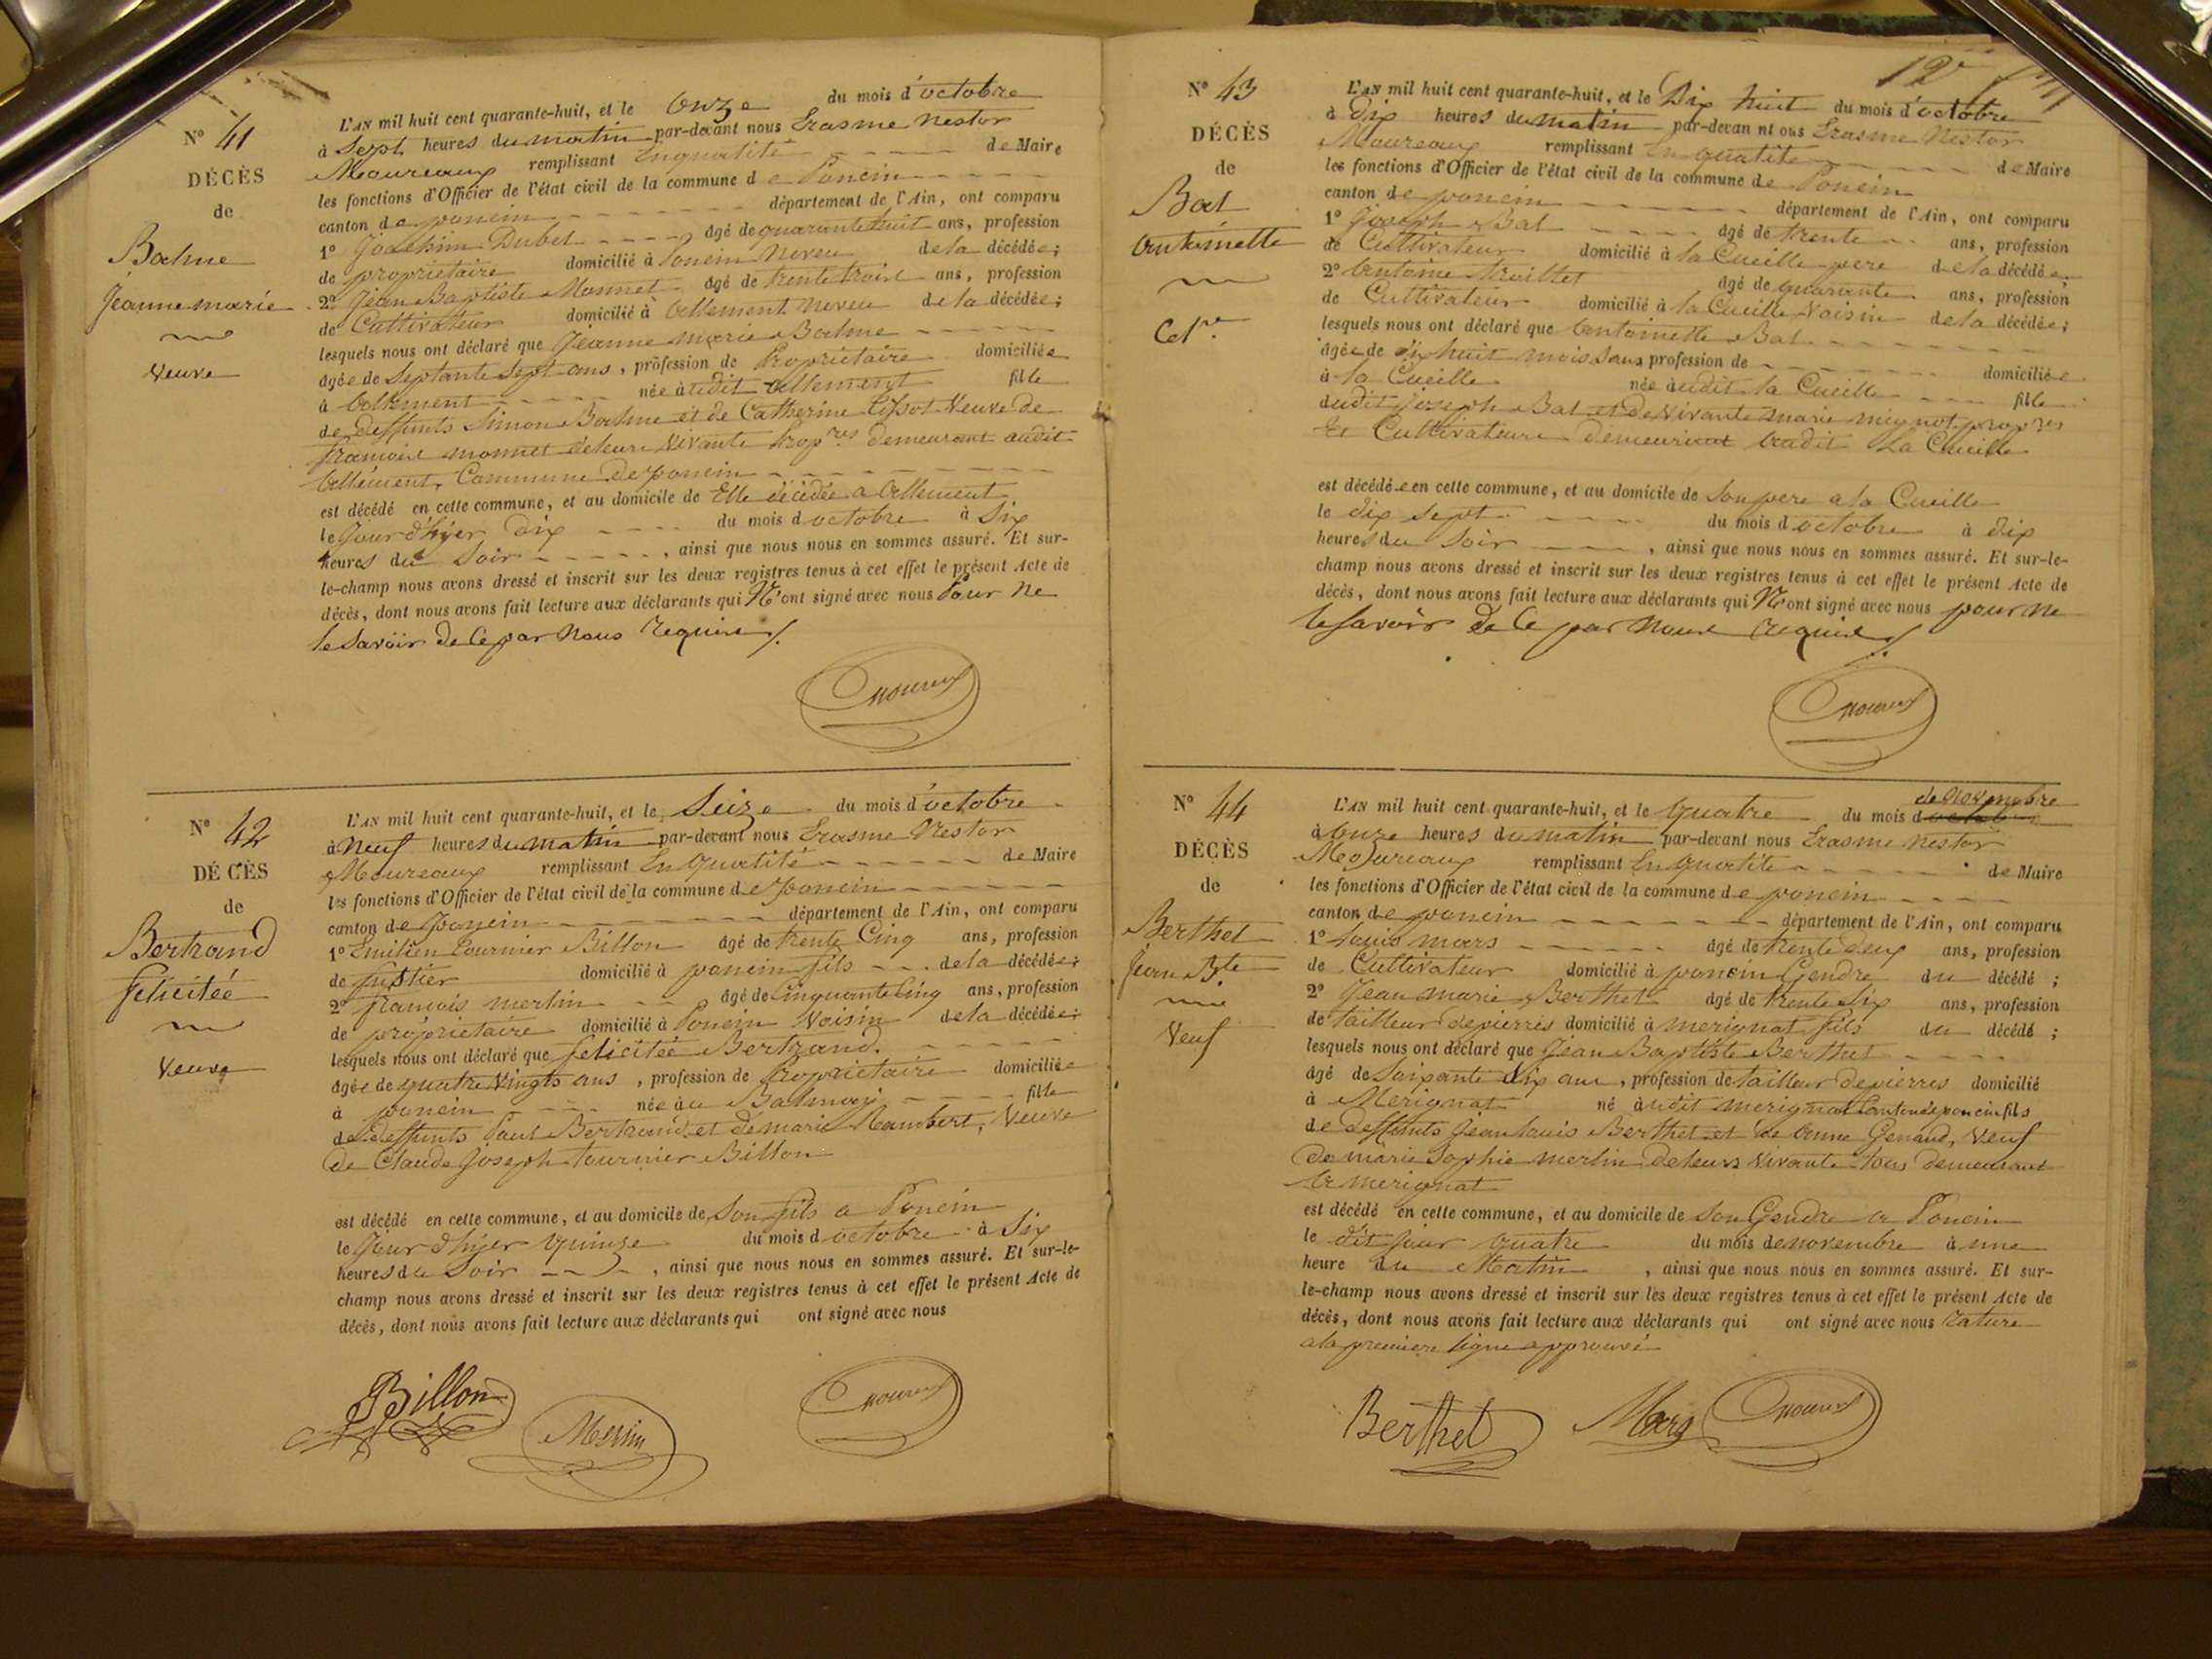 N° 41
DÉCÈS
de
Balme
Jeanne marie
veuve
L'AN mil huit cent quarante-huit, et le Onze du mois d'octobre
à Sept heures du matin par-devant nous Erasme Nestor
Moureaux remplissant En qualité de Maire
les fonctions d'Officier de l'état civil de la commune de Poncin
canton de poncin département de l'Ain, ont comparu
1° Joachim Dubet âgé de quarante huit ans, profession
de propriétaire domicilié à Poncin Neveu de la décédée;
2° Jean Baptiste Monnet âgé de trente trois ans, profession
de Cultivateur domicilié à Allement neveu de la décédée;
lesquels nous ont déclaré que Jeanne marie Balme
âgée de Septante Sept ans, profession de Propriétaire domiciliée
à Allement née àudit Allement fille
de deffunts Simon Balme et de Catherine Veuve de
francois monnet deleurs vivants Prop.res demeurant audit
Allement, Commune de poncin
est décédé en cette commune, et au domicile de Elle décédée a Allement
le Jour d'hyer Dix du mois d octobre à Six
heures du Soir, ainsi que nous nous en sommes assuré. Et sur-
le-champ nous avons dressé et inscrit sur les deux registres tenus à cet effet le présent Acte de
décès, dont nous avons fait lecture aux déclarants qui N'ont signé avec nous Pour ne
le Savoir de Ce par Nous requis /.
Moureaux
N° 42
DÉCÈS
de
Bertrand
felicitée
Veuve
L'AN mil huit cent quarante-huit, et le Seize du mois d'octobre
à Neuf heures du matin par-devant nous Erasme Nestor
Moureaux remplissant En qualité de Maire
les fonctions d'Officier de l'état civil de la commune de poncin
canton de poncin département de l'Ain, ont comparu
1° Emilien Tournier Billon âgé de trente Cinq ans, profession
de domicilié à poncin fils de la décédée;
2° francois merlin âgé de Cinquante Cinq ans, profession
de propriétaire domicilié à Poncin Voisin de la décédée;
lesquels nous ont déclaré que felicitée Bertrand.
âgée de quatre Vingts ans, profession de Propriétaire domiciliée
à poncin née àu Balmay fille
de deffunts Paul Bertrand et de marie Rambert, Veuve
De Claude Joseph tournier Billon
est décédé en cette commune, et au domicile de Son fils a Poncin
le Jour d'hyer quinze du mois d octobre à Six
heures du Soir, ainsi que nous nous en sommes assuré. Et sur-le-
champ nous avons dressé et inscrit sur les deux registres tenus à cet effet le présent Acte de
décès, dont nous avons fait lecture aux déclarants qui ont signé avec nous
Billon Merlin Moureaux
12e
N° 43
DÉCÈS
de
Bal
Antoinette
Cel.re
L'AN mil huit cent quarante-huit, et le Dix huit du mois d'octobre
à Dix heures du matin par-devan nt ous Erasme Nestor
Moureaux remplissant En qualité de Maire
les fonctions d'Officier de l'état civil de la commune de Poncin
canton de poncin département de l'Ain, ont comparu
1° Joseph Bal âgé de trente ans, profession
de Cultivateur domicilié à la Cueille pere de la décédée;
2° Antoine troillet âgé de quarante ans, profession
de Cultivateur domicilié à la Cueille Voisin de la décédée;
lesquels nous ont déclaré que Antoinette Bal
âgée de dix huit mois Sans profession de domiciliée
à la Cueille née àudit la Cueille fille
dudit Joseph Bal et de vivante marie mignot propres
et Cultivateurs demeurant audit La Cueille
est décédée en cette commune, et au domicile de Son pere a la Cueille
le dix sept du mois d octobre à dix
heures du Soir, ainsi que nous nous en sommes assuré. Et sur-le-
champ nous avons dressé et inscrit sur les deux registres tenus à cet effet le présent Acte de
décès, dont nous avons fait lecture aux déclarants qui N'ont signé avec nous pour ne
le Savoir de Ce par Nous requis /.
Moureaux
N° 44
DÉCÈS
de
Berthet
Jean Bte
Veuf
de novembre
L'AN mil huit cent quarante-huit, et le quatre du mois d octobre
à Onze heures du matin par-devant nous Erasme nestor
Moureaux remplissant En qualité de Maire
les fonctions d'Officier de l'état civil de la commune de poncin
canton de poncin département de l'Ain, ont comparu
1° Louis mars âgé de trente deux ans, profession
de Cultivateur domicilié à poncin Gendre du décédé;
2° Jean marie Berthet âgé de trente Six ans, profession
de tailleur de pierres domicilié à merignat fils du décédé;
lesquels nous ont déclaré que Jean Baptiste Berthet
âgé de Soixante Dix ans, profession de tailleur de pierres domicilié
à Merignat né àudit merignat Canton de poncin fils
de deffunts Jean Louis Berthet et de Anne Genaud, Veuf
de marie Sophie merlin deleurs vivants tous demeurant
A merignat
est décédé en cette commune, et au domicile de Son Gendre a Poncin
le dit jour quatre du mois de novembre à une
heure du Matin, ainsi que nous nous en sommes assuré. Et sur-
le-champ nous avons dressé et inscrit sur les deux registres tenus à cet effet le présent Acte de
décès, dont nous avons fait lecture aux déclarants qui ont signé avec nous rature
a la premiere ligne approuvé
Berthet Mars Moureaux